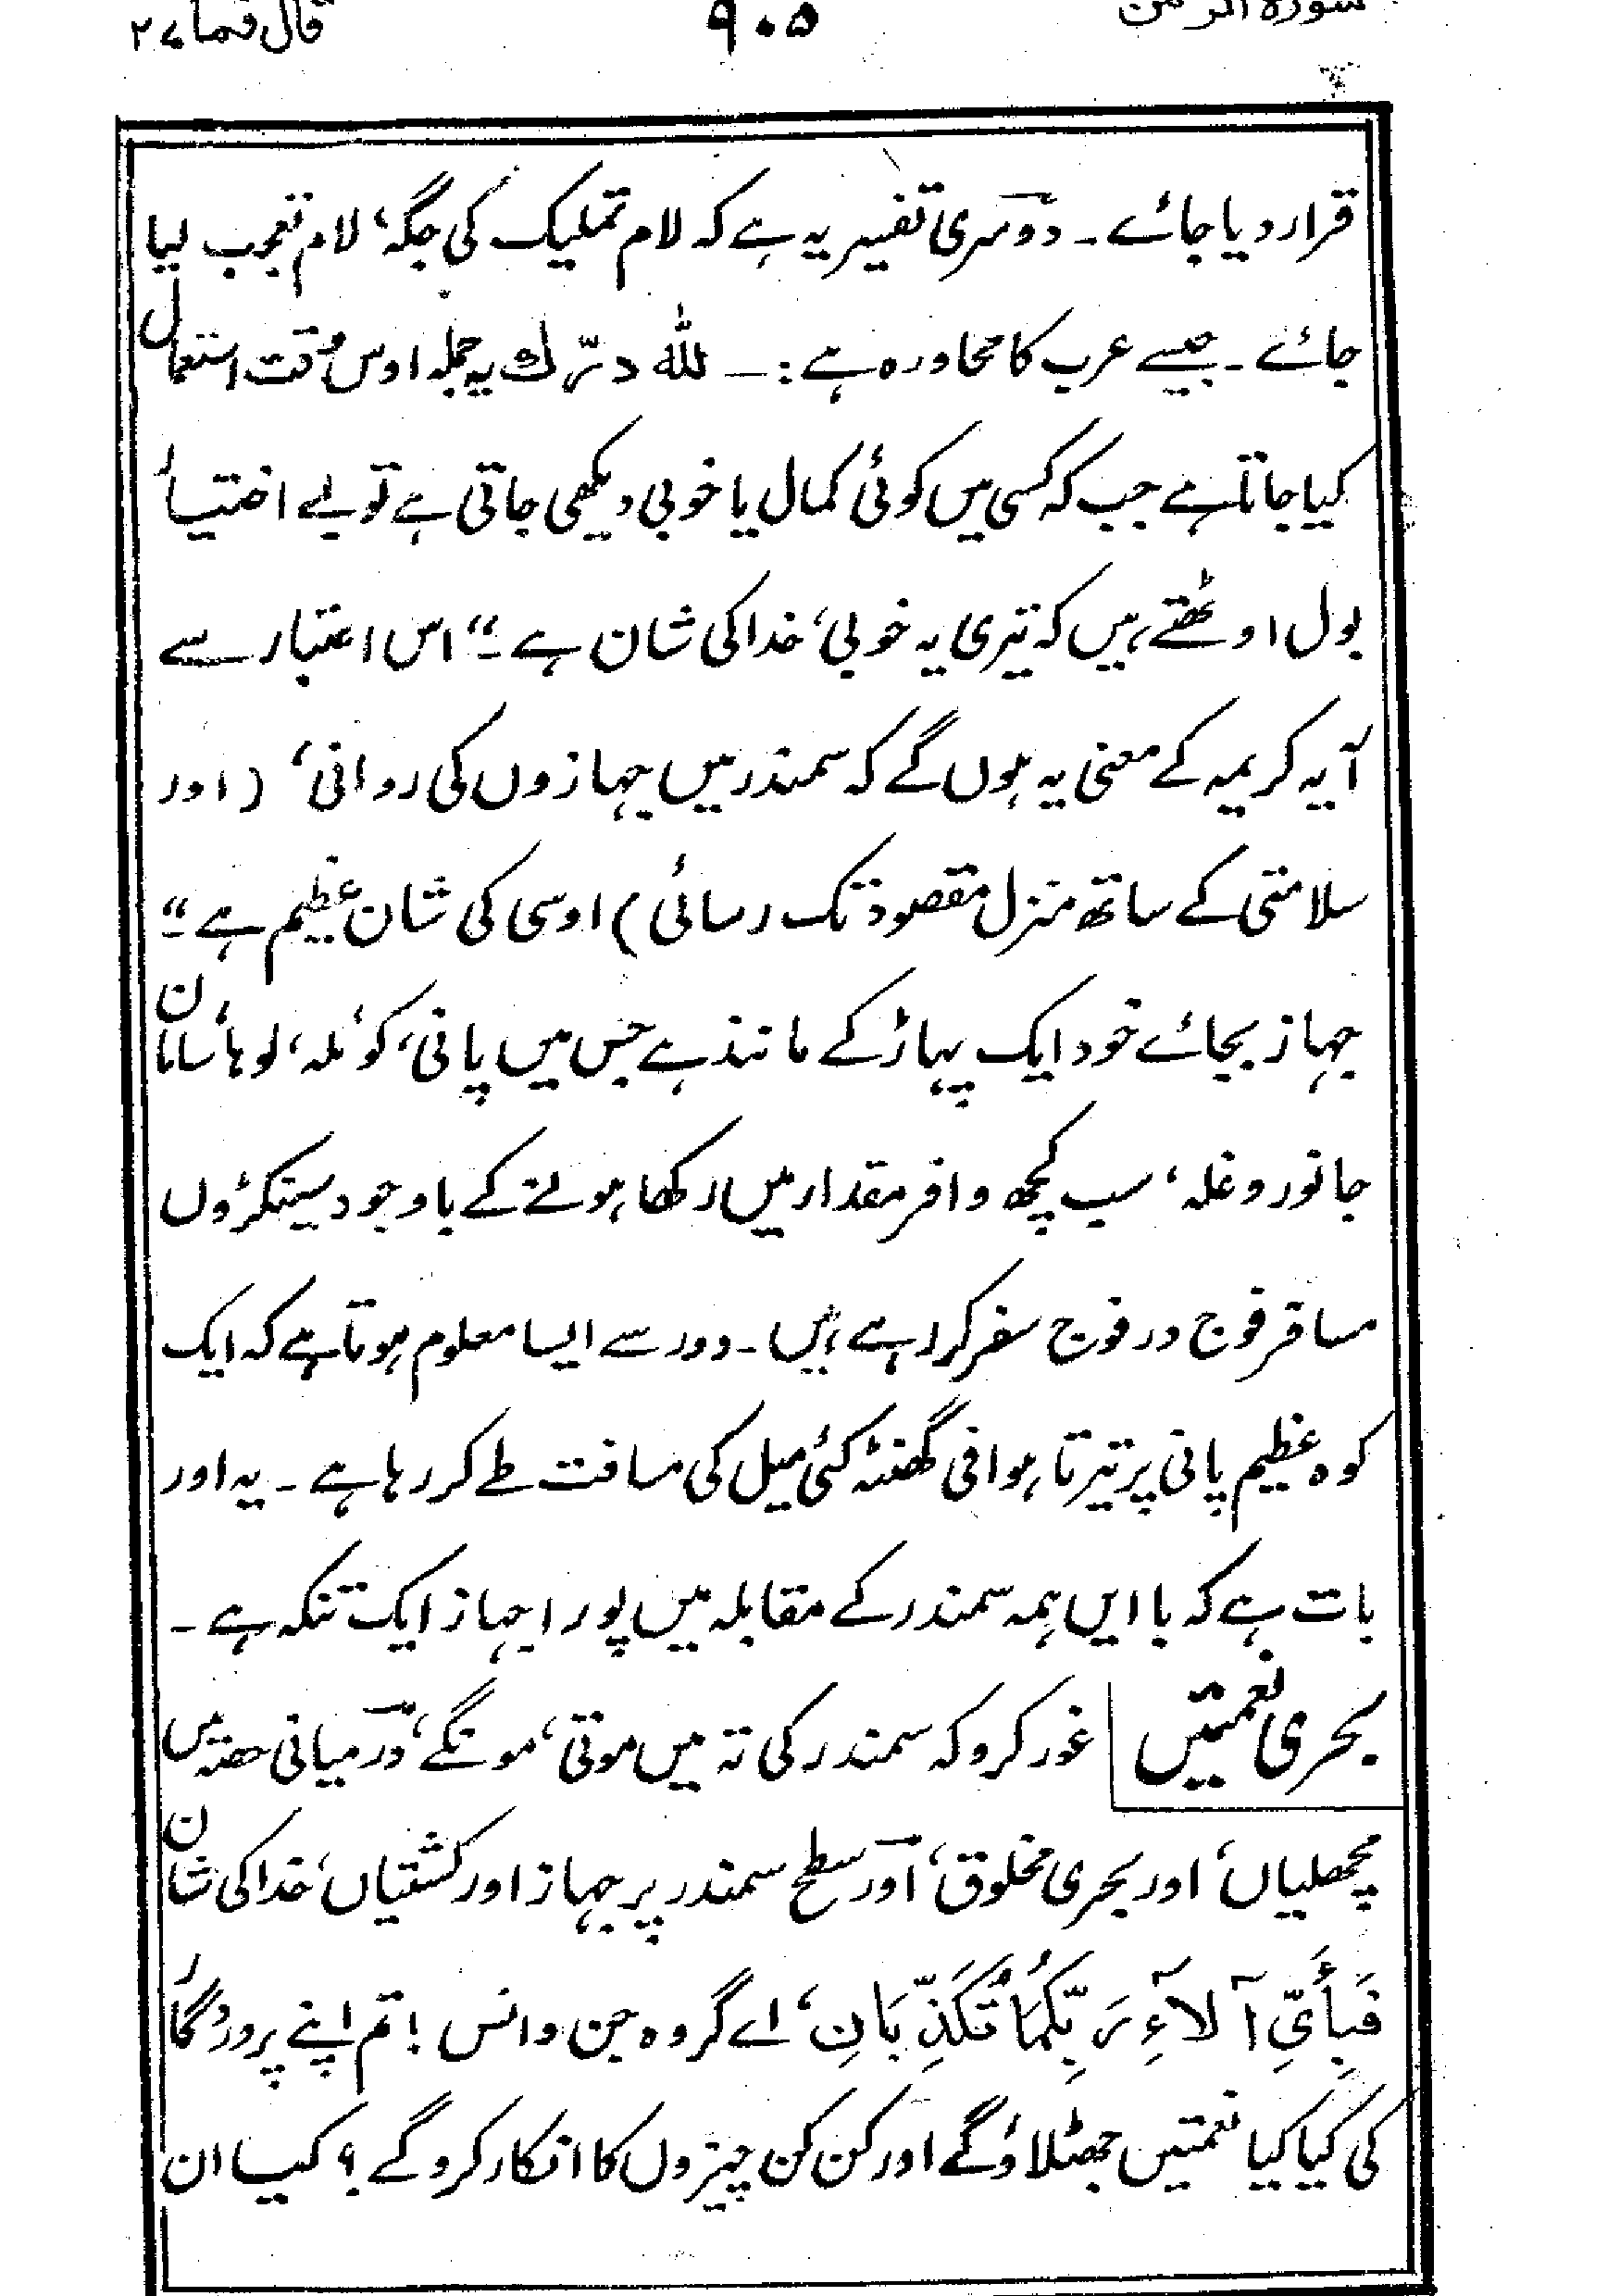 سورۃ الرحمٰن ۹۰۵ قال فما ۲۷
قرار دیا جائے ۔ دوسری تفسیر یہ ہے کہ لام تملیک کی جگہ، لام تعجب لیا
جائے ۔ جیسے عرب کا محاورہ ہے :- للّٰہ درّك یہ جملہ اوس وقت استعمال
کیا جاتا ہے جب کہ کسی میں کوئی کمال یا خوبی دیکھی جاتی ہے تو بے اختیار
بول اوٹھتے ہیں کہ تیری یہ خوبی، خدا کی شان ہے ۔“ اس اعتبار سے
آیہ کریمہ کے معنی یہ ہوں گے کہ سمندر میں جہازوں کی روانی، (اور
سلامتی کے ساتھ منزل مقصود تک رسائی) اوسی کی شان عظیم ہے ۔“
جہاز بجائے خود ایک پہاڑ کے مانند ہے جس میں پانی، کوئلہ، لوہا، سامان
جانور و غلہ، سب کچھ وافر مقدار میں رکھا ہونے کے باوجود سینکڑوں
مسافر فوج در فوج سفر کر رہے ہیں ۔ دور سے ایسا معلوم ہوتا ہے کہ ایک
کوہ عظیم پانی پر تیرتا ہوا فی گھنٹہ کئی میل کی مسافت طے کر رہا ہے ۔ یہ اور
بات ہے کہ با ایں ہمہ سمندر کے مقابلہ میں پورا جہاز ایک تنکہ ہے ۔
بحری نعمتیں غور کرو کہ سمندر کی تہ میں موتی، مونگے، درمیانی حصّہ میں
مچھلیاں، اور بحری مخلوق، اور سطح سمندر پر جہاز اور کشتیاں، خدا کی شان
فَبِأَيِّ آلَآءِ رَبِّكُمَا تُكَذِّبَانِ، اے گروہ جن و انس ! تم اپنے پروردگار
کی کیا کیا نعمتیں جھٹلاؤ گے اور کن کن چیزوں کا انکار کرو گے ؟ کیا ان